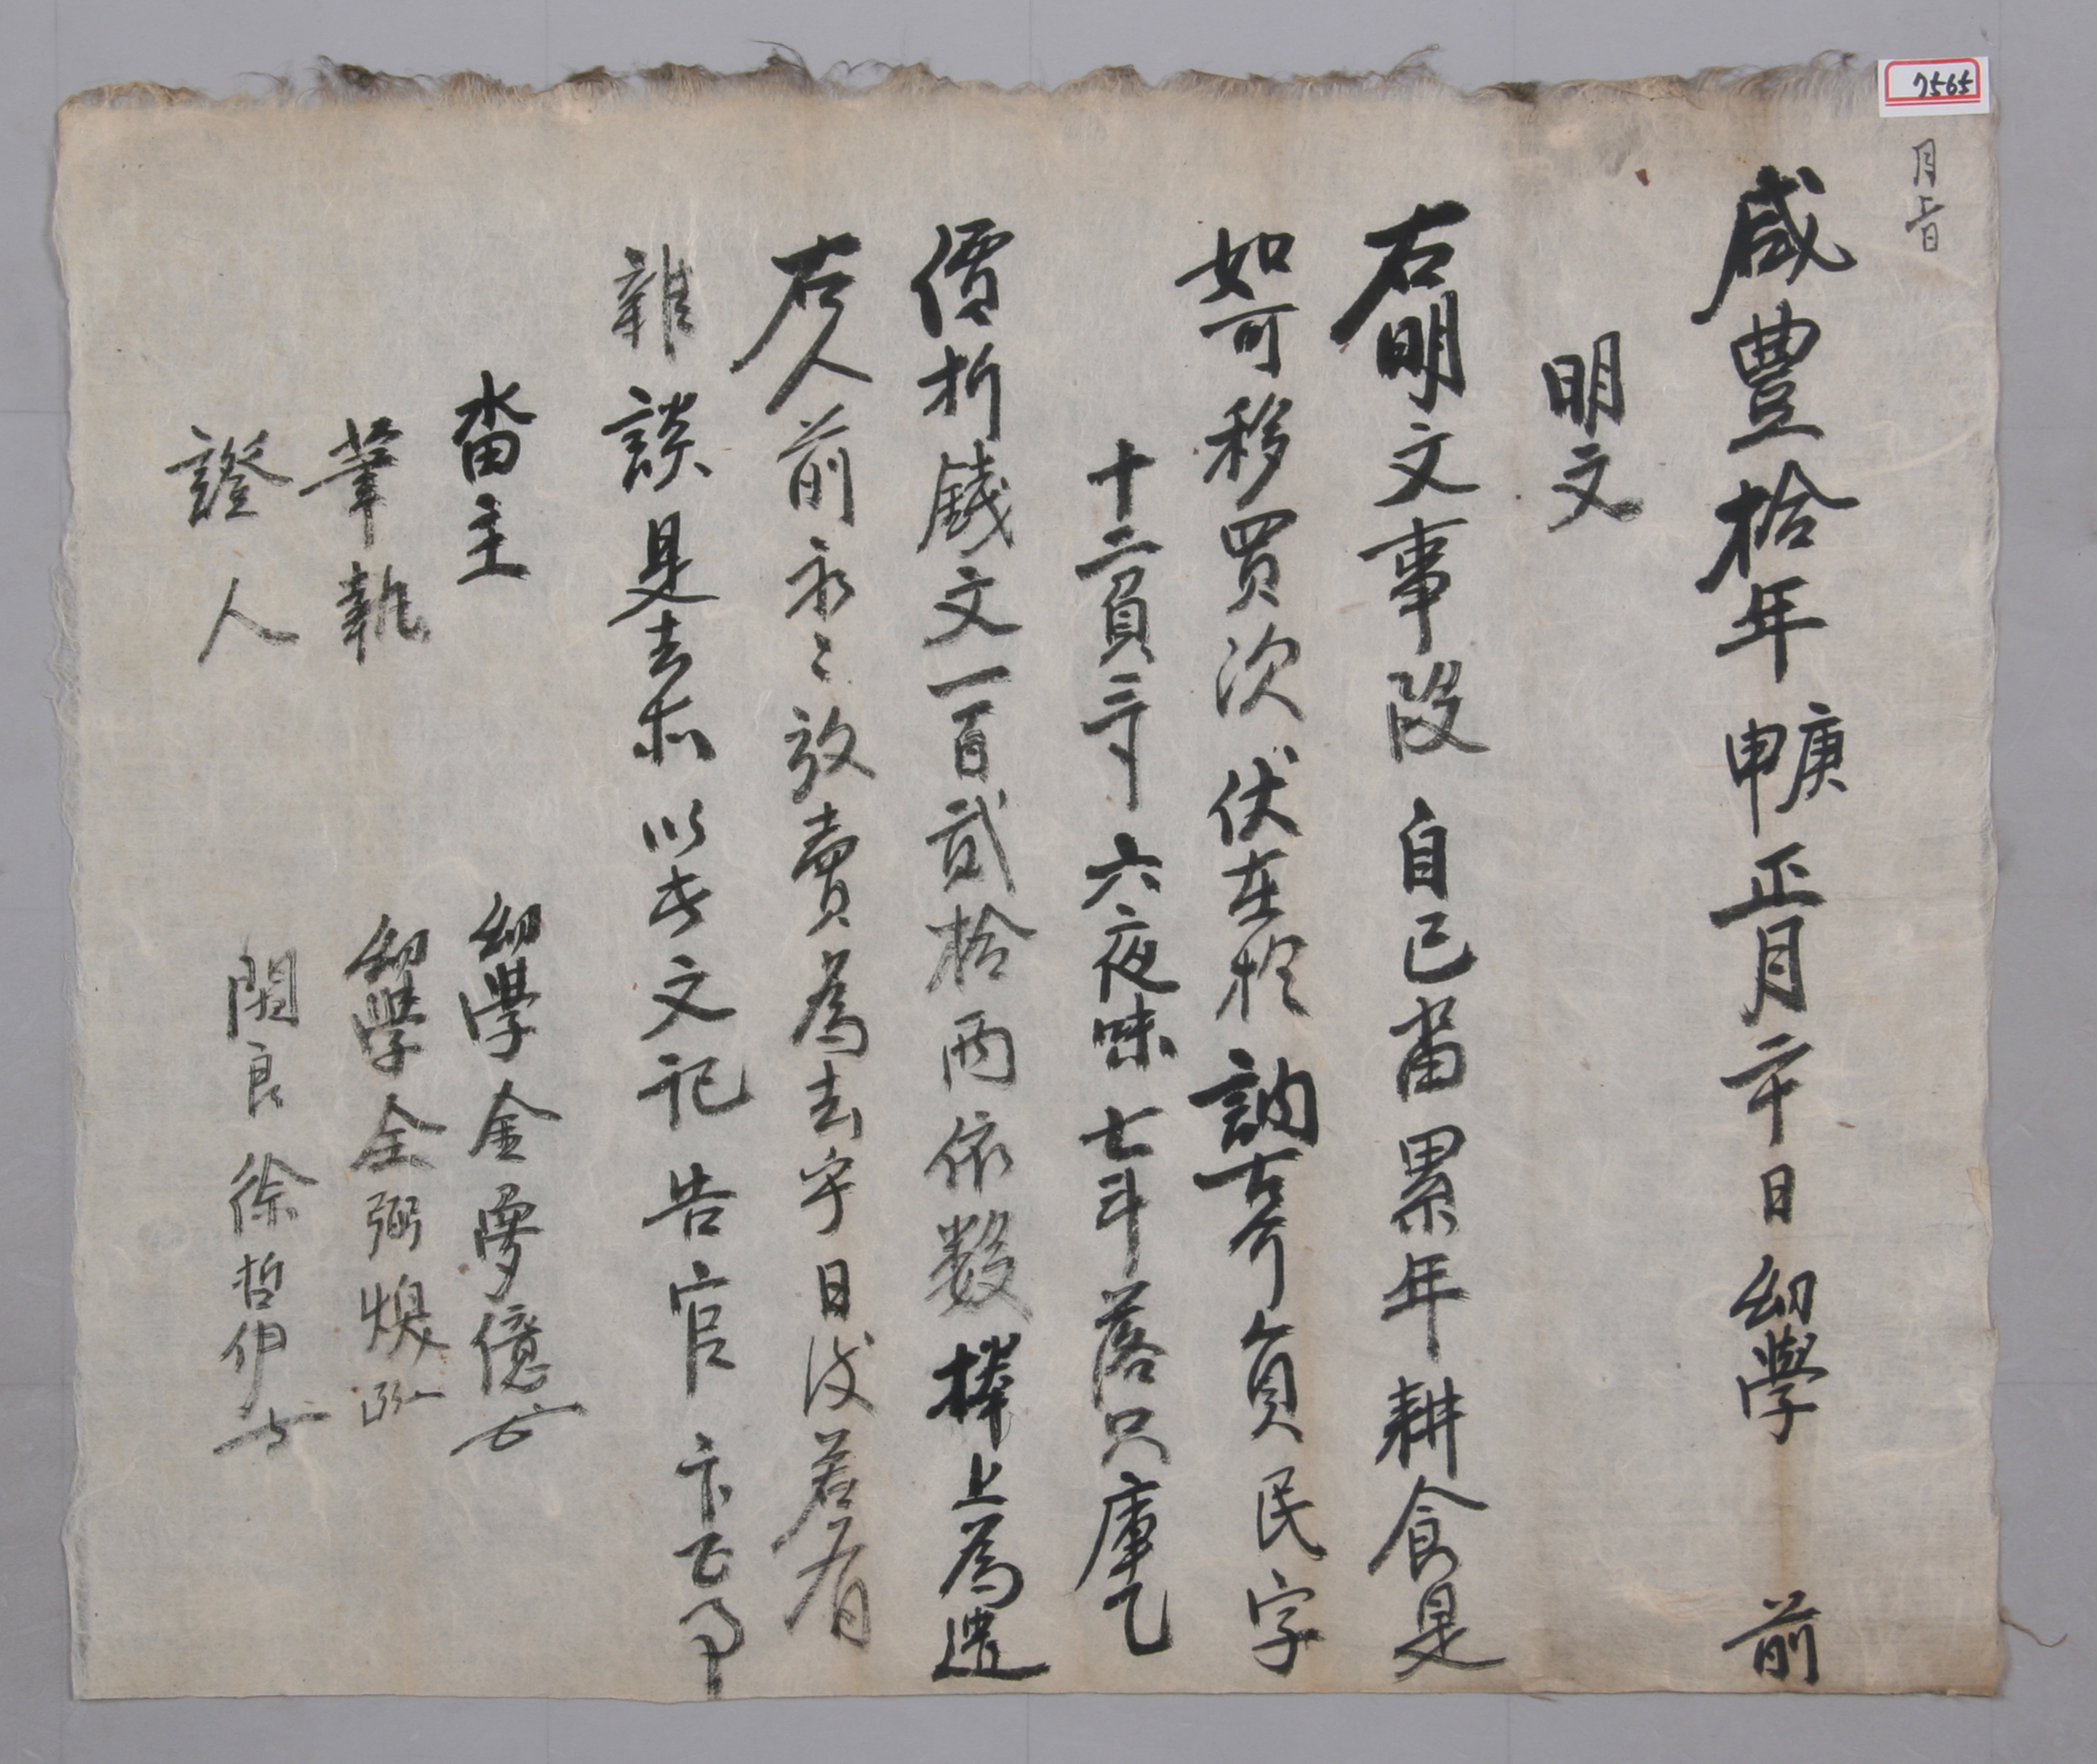 7565
咸豊拾年庚申正月二十日幼學 前
明文
右明文事段自己畓累年耕食是
如可移買次伏在於訥古 員民字
十二負三 六夜味七斗落只庫乙
價折錢文一百貳拾兩依數捧上爲遣
右人前永々放賣爲去乎日後若有
雜談是去亦以此文記告官卞正事
畓主 幼學金夢億
筆執 幼學全弼煥
證人 閑良徐哲伊